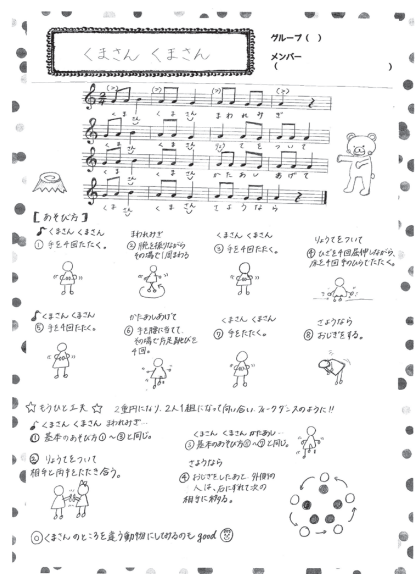 くまさん くまさん
グループ（ ）
メンバー
（ ）
く ま さん く ま さん ま わ れ み ぎ
く ま さん く ま さん りょう て を つ い て
く ま さん く ま さん か た あ し あ げ て
く ま さん く ま さん さ よ う な ら
【あそび方】
♪くまさん くまさん
①手を4回たたく。
まわれみぎ
②腕を振りながら
その場で1周まわる
くまさん くまさん
③手を4回たたく。
りょうてをついて
④ひざを4回屈伸しながら、
床を4回手のひらでたたく。
♪くまさん くまさん
⑤手を4回たたく。
かたあしあげて
⑥手を腰に当てて、
その場で片足跳びを
4回。
くまさん くまさん
⑦手をたたく。
さようなら
⑧おじぎをする。
☆もうひと工夫☆ 2重円になり、2人1組になって向い合い、フォークダンスのように!!
♪くまさん くまさん まわれみぎ…
①基本のあそび方①〜③と同じ。
②りょうてをついて
相手と両手をたたき合う。
くまさん くまさん かたあし…
③基本のあそび方⑤〜⑦と同じ。
さようなら
④おじぎをしたあと、外側の
人は、右にずれて次の
相手に移る。
◎くまさんのところを違う動物にしてみるのも good